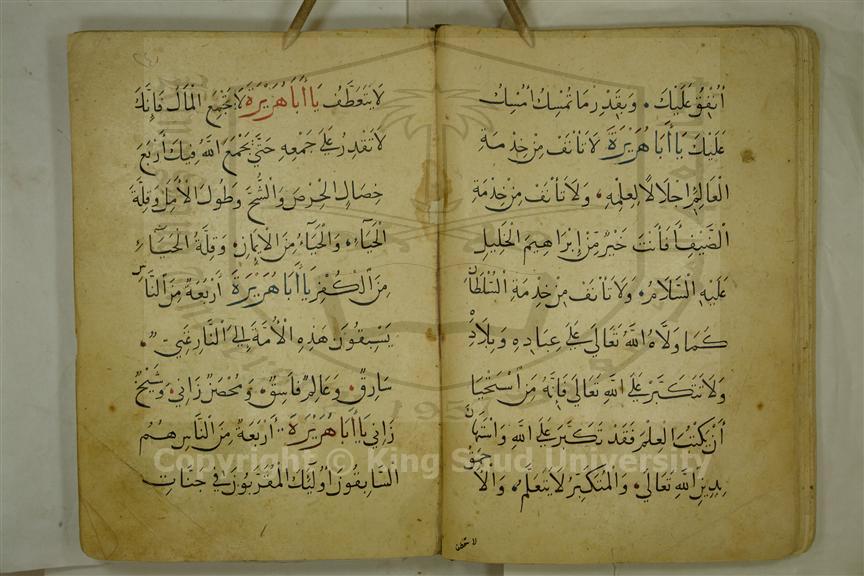 انفق عليك. وبقدر ما تمسك امسك
عليك يا أبا هريرة لا تأنف من خدمة
العالم اجلالا لعلمه. ولا تأنف من خدمة
الضيف فأنت خير من إبراهيم الخليل
عليه السلام. ولا تأنف من خدمة السلطان
كما ولاه الله تعالى على عباده وبلاده
ولا تتكبر على الله تعالى فانه من استحيا
أن يكتب العلم فقد تكبر على الله واستهان
بدين الله تعالى. والمتكبر لا يتعلم. والأحمق
لا يتعطف يا أبا هريرة لا تجمع المال فإنك
لا تقدر على جمعه حتى يجمع الله فيك أربع
خصال الحرص والشح وطول الأمل وقلة
الحياء. والحياء من الإيمان. وقلة الحياء
من الكفر يا أبا هريرة أربعة من الناس
يسبقون هذه الأمة إلى النار غني
سارق. وعالم فاسق. ومحصن زاني. وشيخ
زاني يا أبا هريرة أربعة من الناس هم
السابقون أولئك المقربون في جنات
Copyright © King Saud University